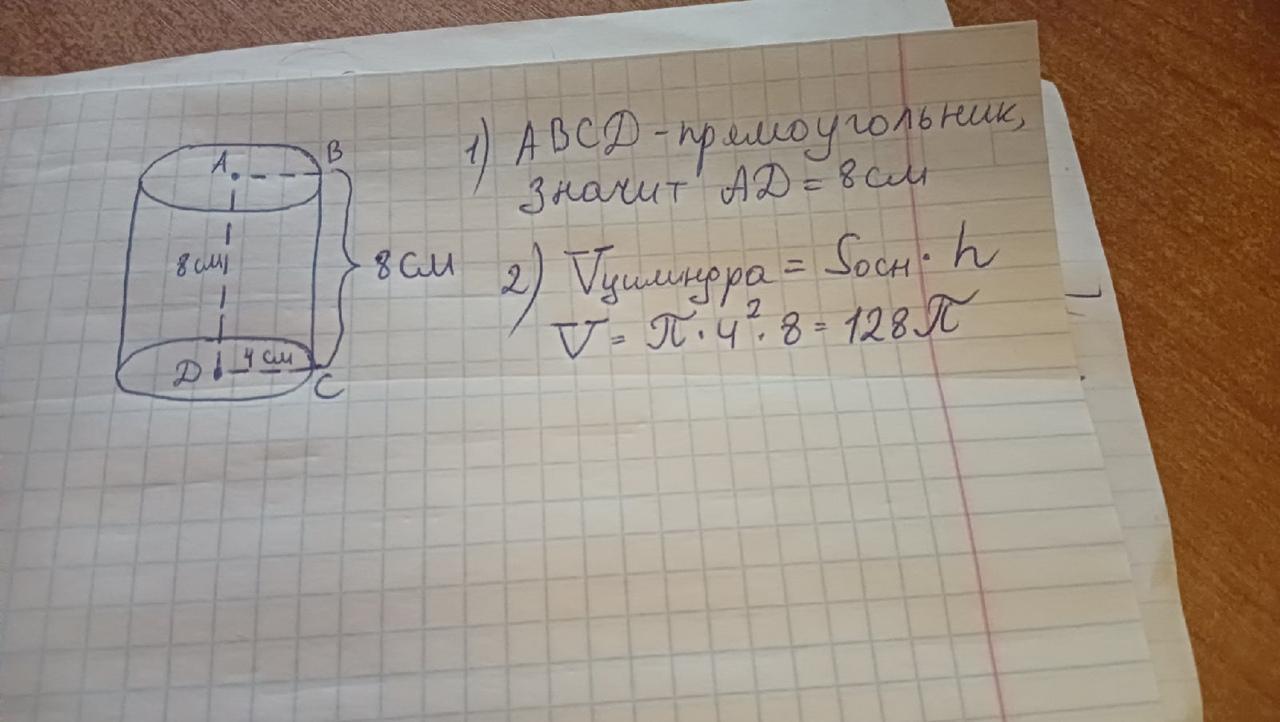 A
B
8 см
8 см
D
4 см
C
1) ABCD - прямоугольник,
значит AD = 8 см
2) Vцилиндра = Sосн · h
V = π · 4² · 8 = 128π